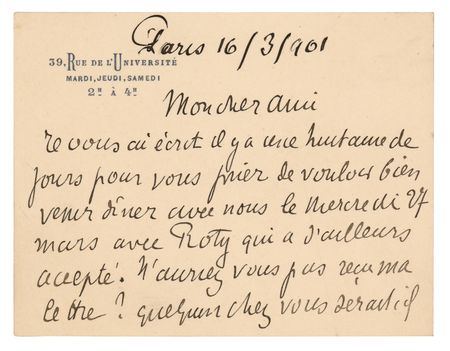 Paris 16/3/901
39, RUE DE L'UNIVERSITÉ
MARDI, JEUDI, SAMEDI
2H À 4H
Mon cher ami
Je vous ai écrit il y a une huitaine de
jours pour vous prier de vouloir bien
venir dîner avec nous le Mercredi 27
mars avec Roty qui a d'ailleurs
accepté. N'auriez vous pas reçu ma
lettre ? quelqu'un chez vous serait il